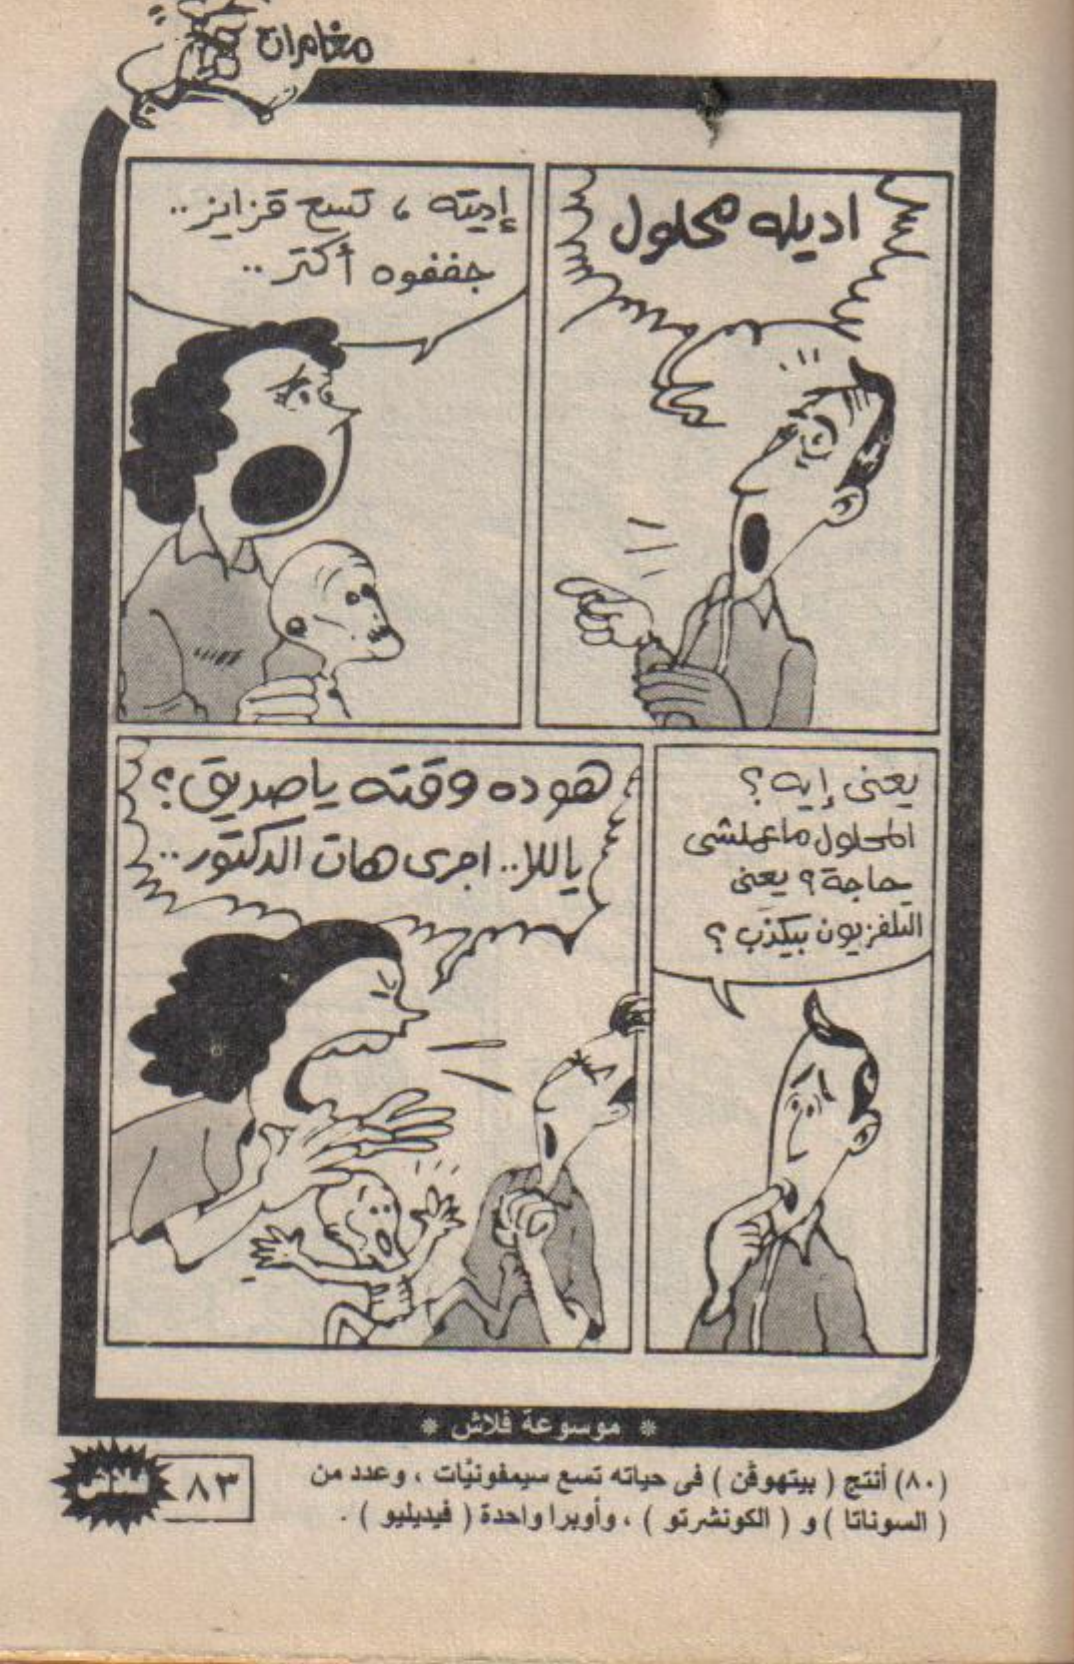 مغامرات
اديله محلول
إديته ، تسع قزايز ..
جففوه أكتر ..
يعنى إيه ؟
المحلول ماعملشى
حاجة ؟ يعنى
التلفزيون بيكذب ؟
هو ده وقته يا صديق ؟
ياللا .. اجرى هات الدكتور ..
* موسوعة فلاش *
(٨٠) أنتج ( بيتهوڤن ) فى حياته تسع سيمفونيَّات ، وعدد من
( السوناتا ) و ( الكونشرتو ) ، وأوبرا واحدة ( فيديليو ) .
٨٣
فلاش